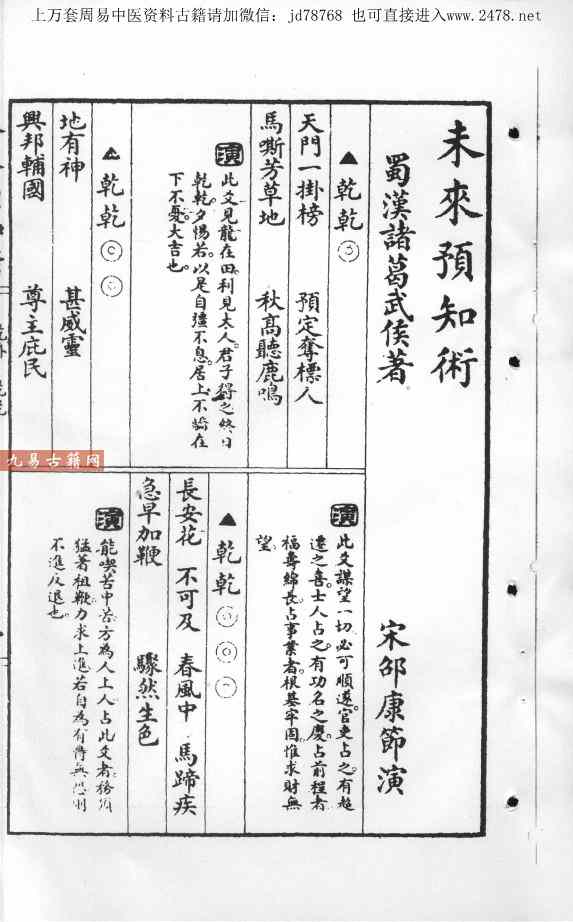 上万套周易中医资料古籍请加微信：jd78768 也可直接进入www.2478.net
未來預知術
蜀漢諸葛武侯著
宋邵康節演
▲乾乾
天門一掛榜 預定奪標人
馬嘶芳草地 秋高聽鹿鳴
演
此爻見龍在田。利見大人。君子得之終日
乾乾。夕惕若。以是自强不息。居上不驕在
下不憂。大吉也。
▲乾乾
地有神 甚威靈
興邦輔國 尊主庇民
演
此爻謀望一切必可順遂。官吏占之。有超
遷之喜。士人占之。有功名之慶。占前程者
福壽綿長。占事業者。根基牢固。惟求財無
望。
▲乾乾
長安花 不可及 春風中 馬蹄疾
急早加鞭 驟然生色
演
能喫苦中苦。方為人上人。占此爻者。務須
猛著祖鞭。力求上進。若自為有得無恐。則
不進反退也。
九易古籍网